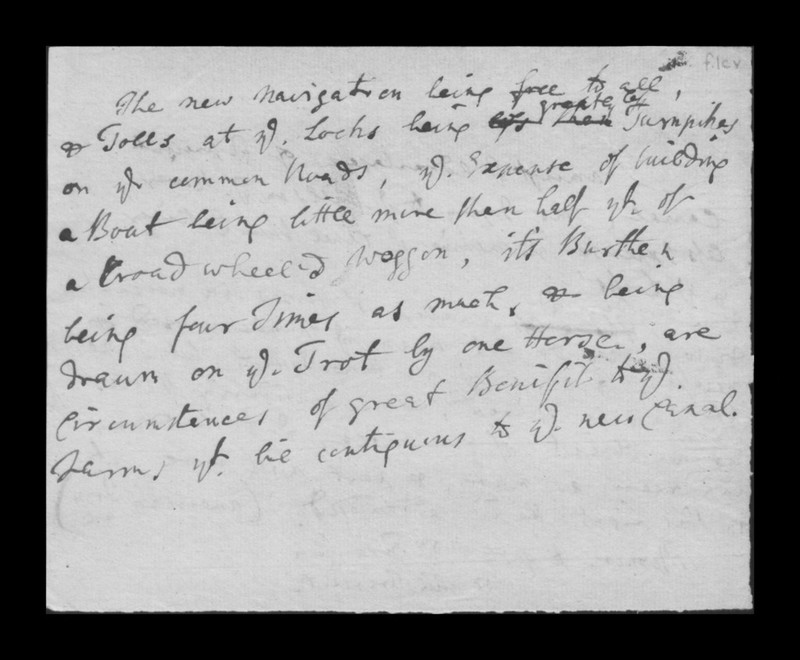 f.1cv
The new Navigation being free to all,
greater to
& Tolls at ye. Locks being less than Turnpikes
on ye common Roads, ye. Expense of building
a Boat being little more than half yt. of
a broad wheel'd Waggon, it's Burthen
being four Times as much, & being
drawn on ye. Trot by one Horse, are
circumstances of great Benifit to ye.
Farms yt. lie contiguous to ye. new Canal.